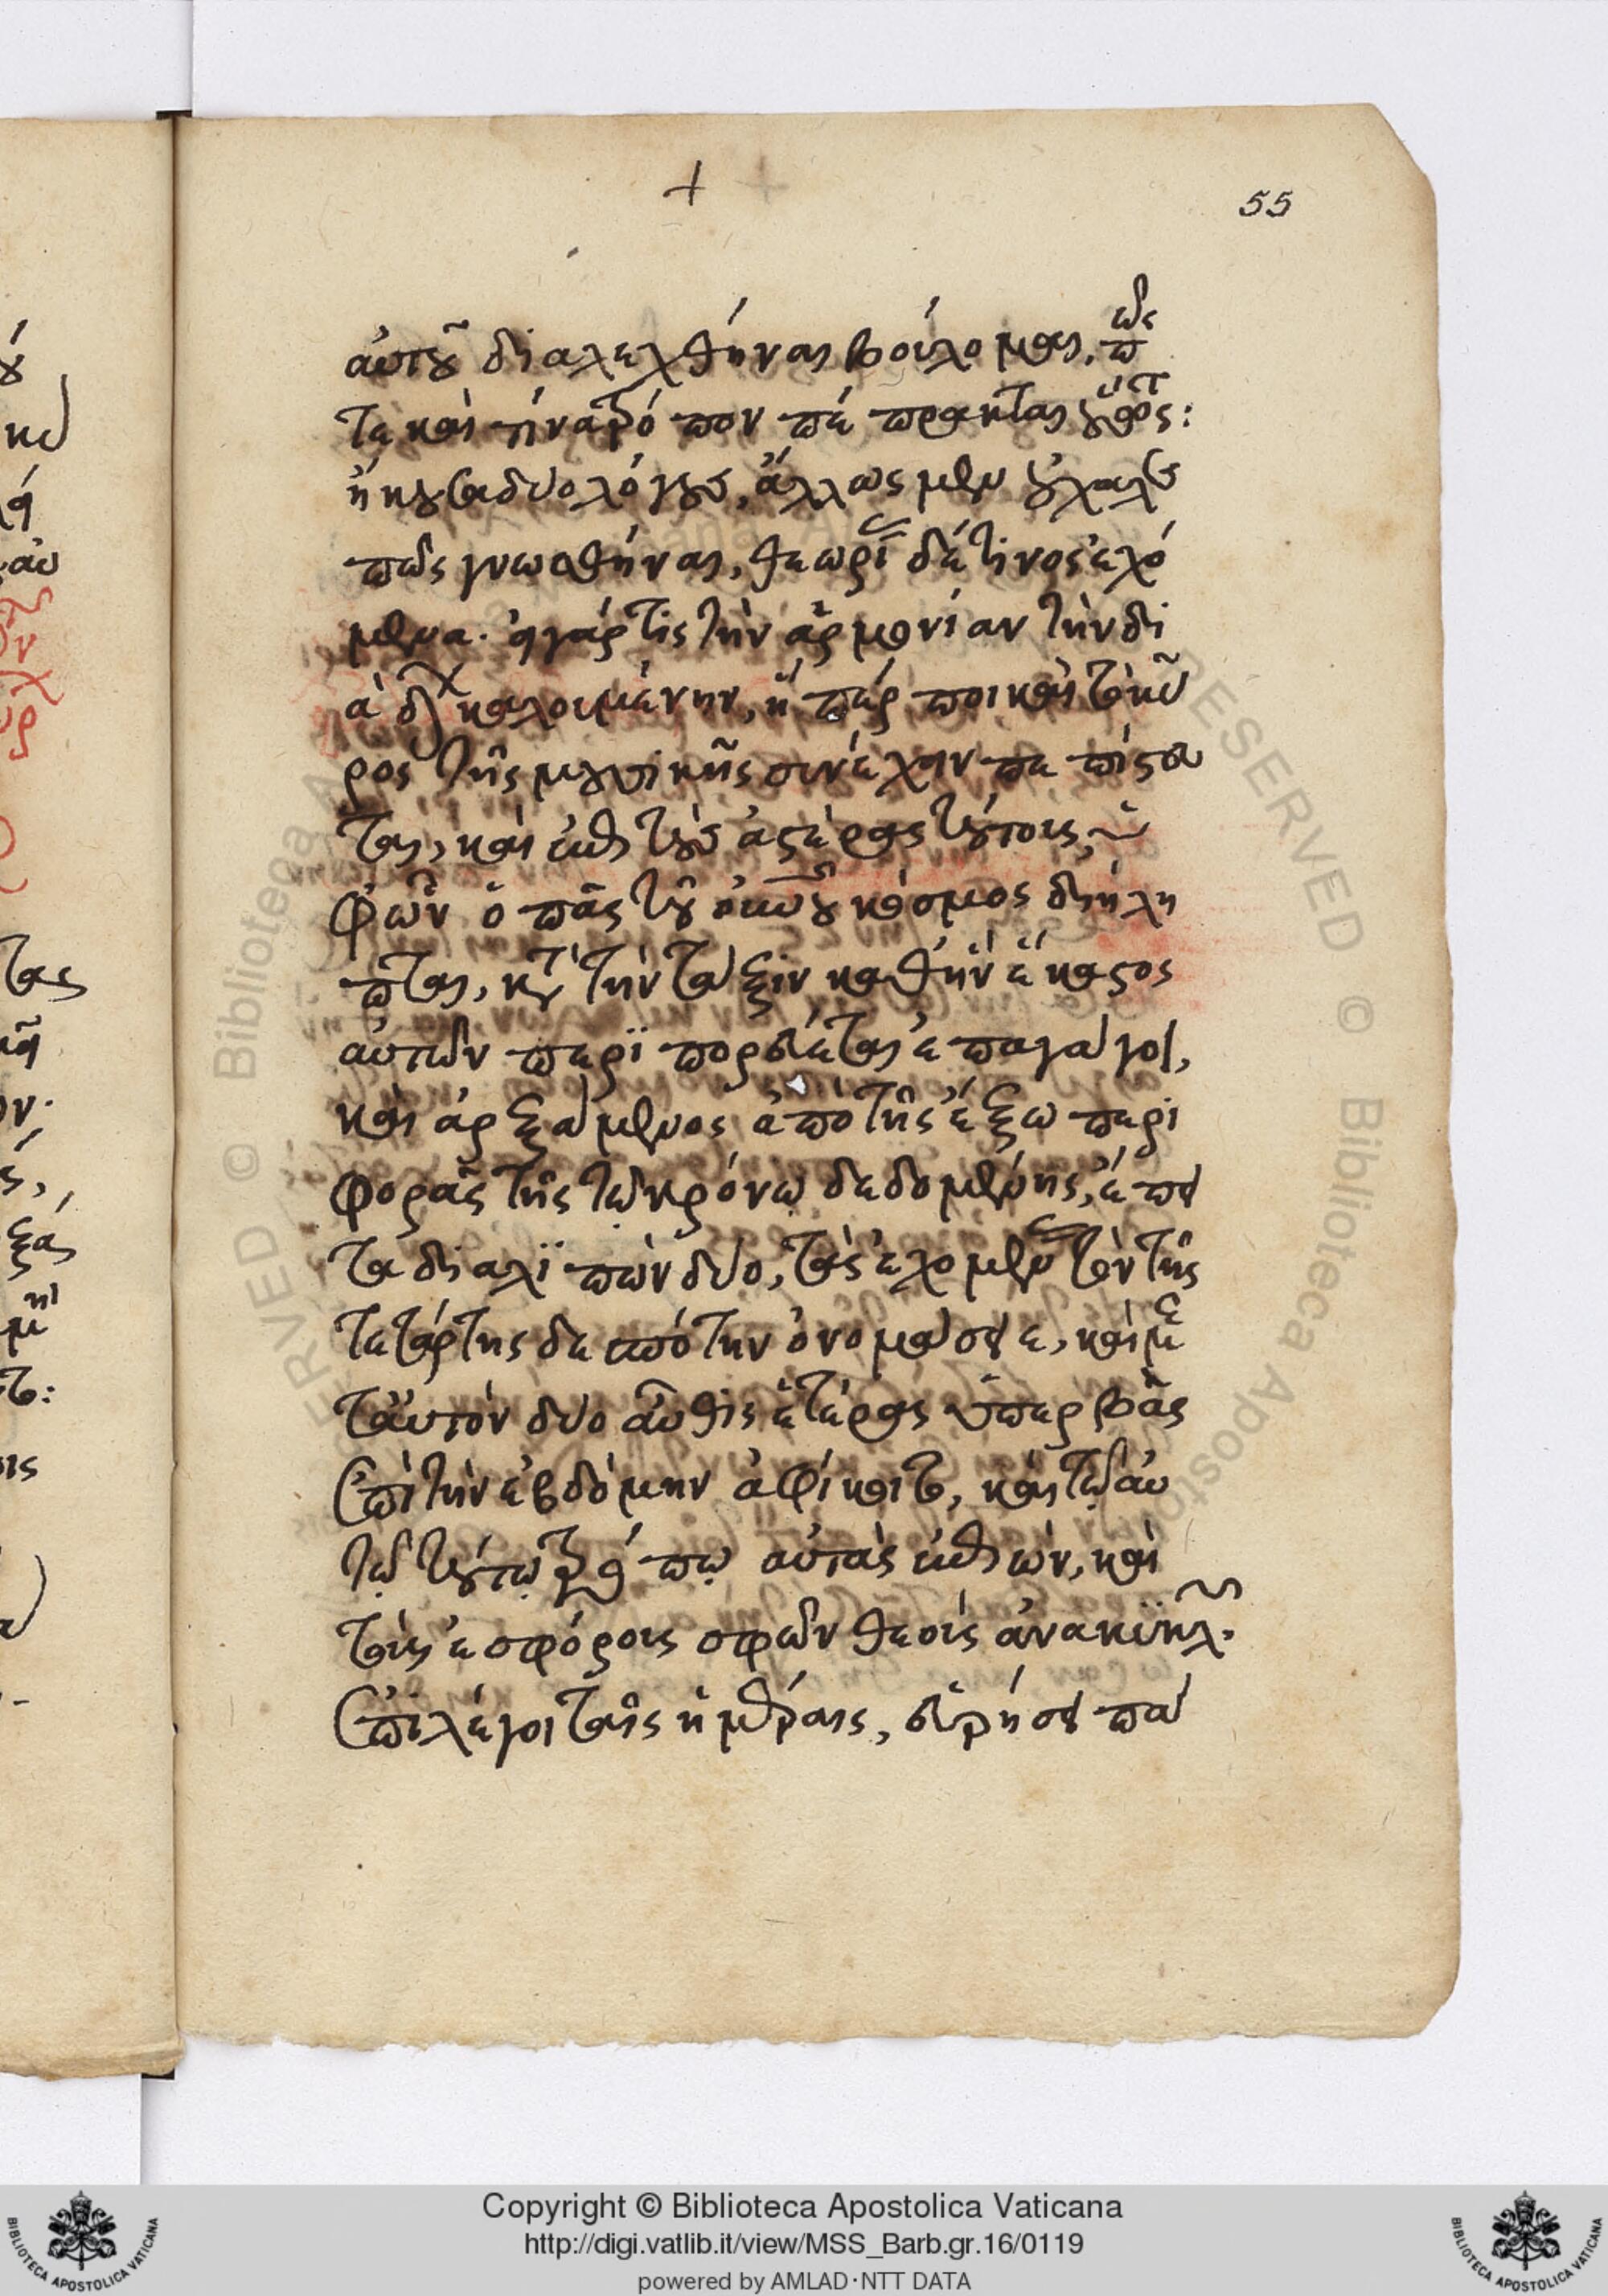 +
55
αὐτοῦ διαλεχθῆναι βούλομαι. πῶς
τε καὶ τίνα τρόπον πέπρακται οὕτως:
ἤκουσα δύο λόγους, ἄλλως μὲν οὐ χαλε
πῶς γνωσθῆναι, θεωρίας δέ τινος ἐχό
μενα. εἰ γάρ τις τὴν ἁρμονίαν τὴν διὰ
δ καλουμένην, ἥπερ που καὶ τὸ κῦ
ρος τῆς μουσικῆς συνέχειν πεπίστευ
ται, καὶ ἐπὶ τοὺς ἀστέρας τούτους,
ὑφ' ὧν ὁ πᾶς τοῦ οὐρανοῦ κόσμος διείλη
πται, κατὰ τὴν τάξιν καθ' ἣν ἕκαστος
αὐτῶν περιπορεύεται ἐπαγάγοι,
καὶ ἀρξάμενος ἀπὸ τῆς ἔξω περι
φορᾶς τῆς τῷ κρόνῳ δεδομένης, ἔπει
τα διαλιπὼν δύο, τὰς ἐχομένας τὸν τῆς
τετάρτης δεσπότην ὀνομάσειε, καὶ με
τ' αὐτὸν δύο αὖθις ἑτέρας ὑπερβὰς
ἐπὶ τὴν ἑβδόμην ἀφίκοιτο, κἀν τῷ αὐ
τῷ τούτῳ τρόπῳ αὐτὰς ἐπιὼν, καὶ
τοὺς ἐσφόρους σφῶν θεοὺς ἀνακυκλῶν
ἐπιλέγοι ταῖς ἡμέραις, εὑρήσει πά
Copyright © Biblioteca Apostolica Vaticana
http://digi.vatlib.it/view/MSS_Barb.gr.16/0119
powered by AMLAD·NTT DATA